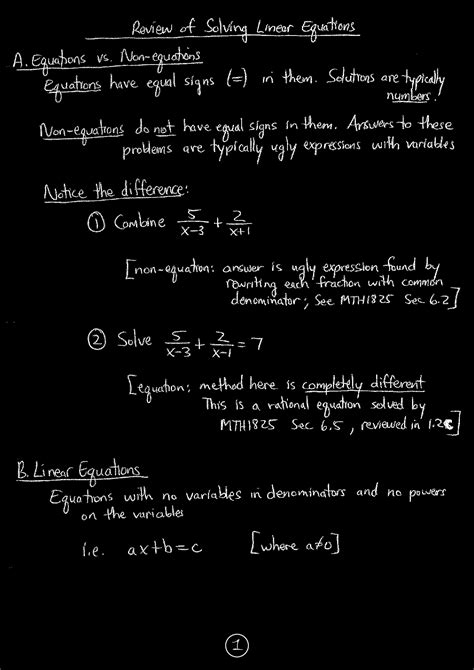 Review of Solving Linear Equations
A. Equations vs. Non-equations
Equations have equal signs (=) in them. Solutions are typically
numbers.
Non-equations do not have equal signs in them. Answers to these
problems are typically ugly expressions with variables
Notice the difference:
① Combine 5/(x-3) + 2/(x+1)
[non-equation: answer is ugly expression found by
rewriting each fraction with common
denominator; See MTH1825 Sec 6.2]
② Solve 5/(x-3) + 2/(x-1) = 7
[equation: method here is completely different
This is a rational equation solved by
MTH1825 Sec 6.5, reviewed in 1.2C]
B. Linear Equations
Equations with no variables in denominators and no powers
on the variables
i.e. ax+b=c [where a≠0]
1